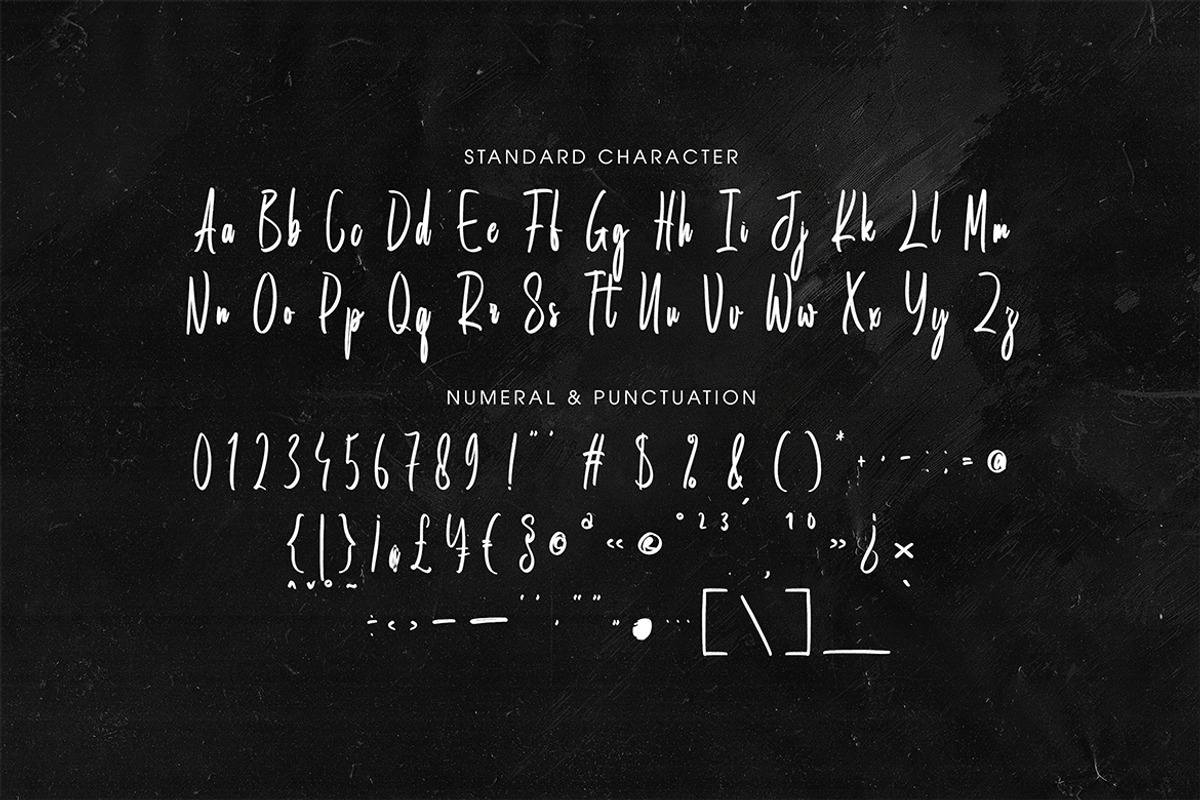 STANDARD CHARACTER
Aa Bb Cc Dd Ee Ff Gg Hh Ii Jj Kk Ll Mm
Nn Oo Pp Qq Rr Ss Tt Uu Vv Ww Xx Yy Zz
NUMERAL & PUNCTUATION
0 1 2 3 4 5 6 7 8 9 ! " ' # $ % & ( ) * + · - : ; = @
{ | } ¡ ¤ £ ¥ € § © ª « ® ° 2 3 ´ 1 0 » ¿ ×
^ ˇ ° ~ ¸ `
÷ ‹ › – — ‘ ’ “ ” „ • … [ \ ] _